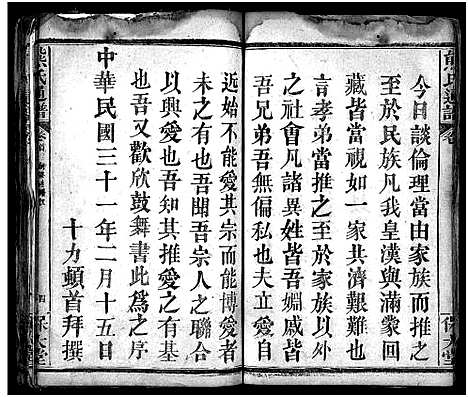 熊氏通譜
今日談倫理當由家族而推之
至於民族凡我皇漢與滿蒙回
藏皆當視如一家共濟艱難也
言孝弟當推至於家族以外
之社會凡諸異姓皆吾姻戚皆
吾兄弟吾無偏私也夫立愛自
近始不能愛其宗而能博愛者
未之有也吾聞吾宗人之聯合
以興愛也吾知其推愛之有基
也吾又歡欣鼓舞書此為之序
中華民國三十一年二月十五日
十力頓首拜撰
熊氏通譜
卷首
四
保大堂